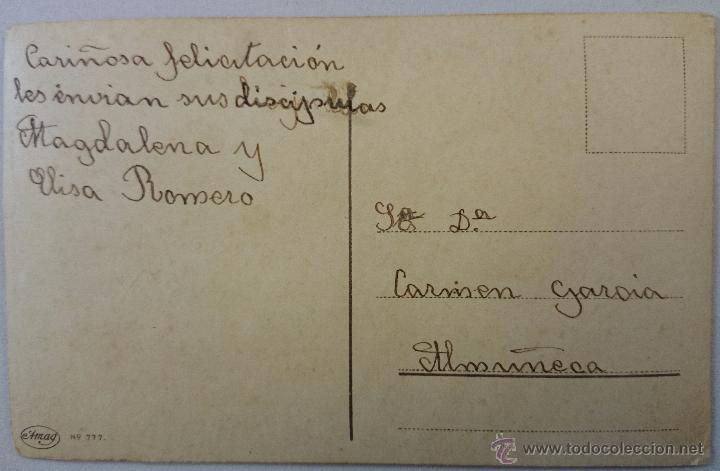 Cariñosa felicitación
les envian sus discipulas
Magdalena y
Elisa Romero
Da
Carmen Garcia
Almuñeca
Amag
No 777.
todocoleccion.net